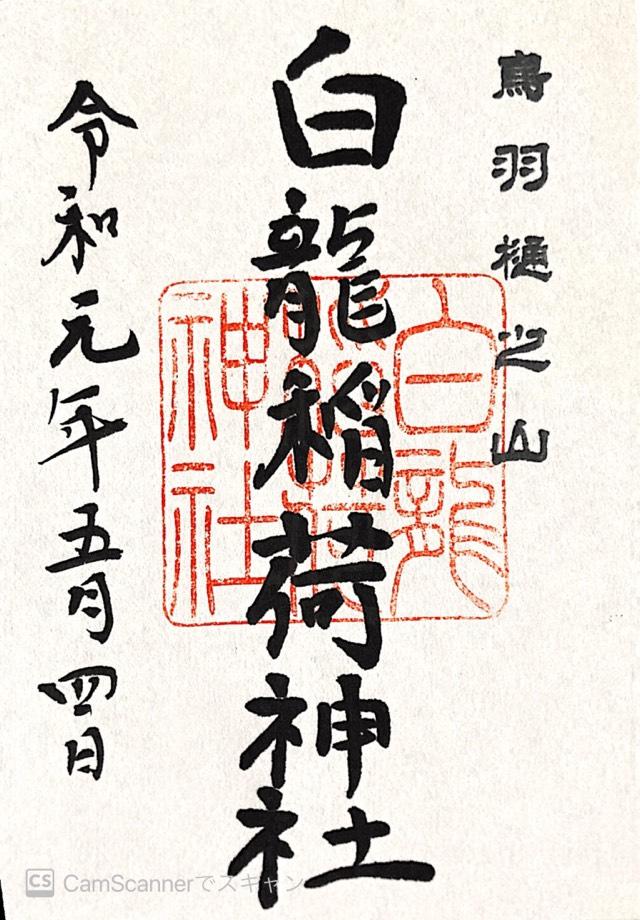 鳥羽樋之山
白龍稲荷神社
令和元年五月四日
白龍
稲荷
神社
CS CamScannerでスキャン